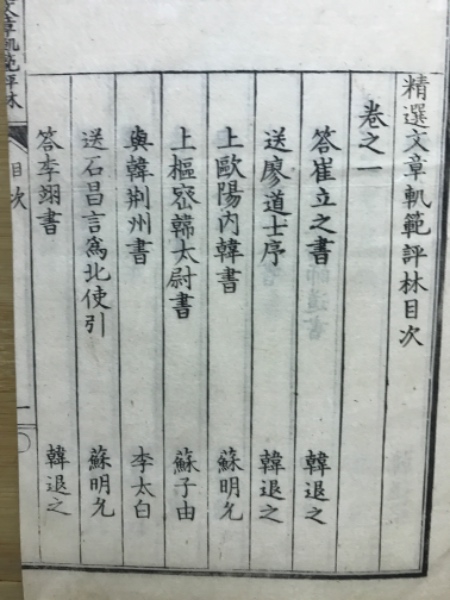 精選文章軌範評林目次
卷之一
答崔立之書 韓退之
送廖道士序 韓退之
上歐陽內韓書 蘇明允
上樞密韓太尉書 蘇子由
與韓荊州書 李太白
送石昌言爲北使引 蘇明允
答李翊書 韓退之
文章軌範評林
目次
一